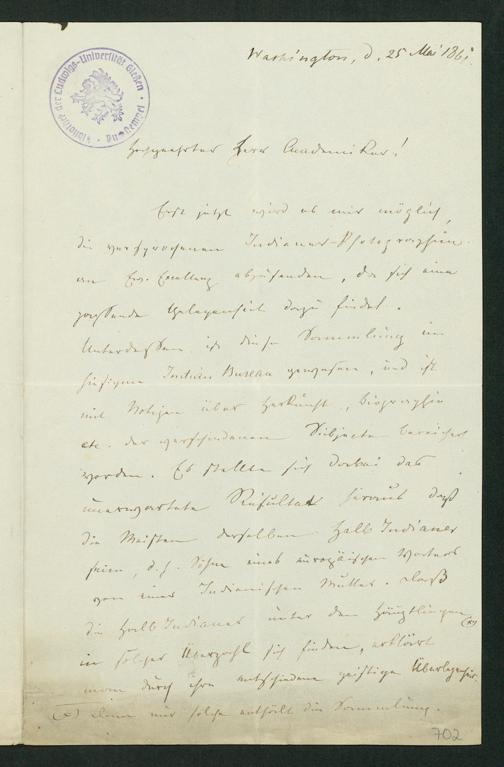 Washington, d. 25 Mai 186
Hochgeehrter Herr Academiker!
Erst jetzt wird es mir möglich,
die versprochenen Indianer-Photographien
an Ew. Excellenz abzusenden, da sich eine
passende Gelegenheit dazu findet.
Unterdessen ist diese Sammlung im
hiesigen Indian Bureau gewesen, und ist
mit Notizen über Herkunft, Biographie
etc. der verschiedenen Subjecte bereichert
worden. Es stellte sich dabei das
unerwartete Resultat heraus daß
die Meisten derselben Halb Indianer
seien, d. h. Söhne eines europäischen Vaters
von einer Indianischen Mutter. Daß
die Halb Indianer unter den Häuptlingen (x)
in solcher Überzahl sich finden, erklärt
man durch ihre entschiedene geistige Überlegenheit.
(x) denn nur solche enthält die Sammlung.
702
der Ludwigs-Universität Gießen